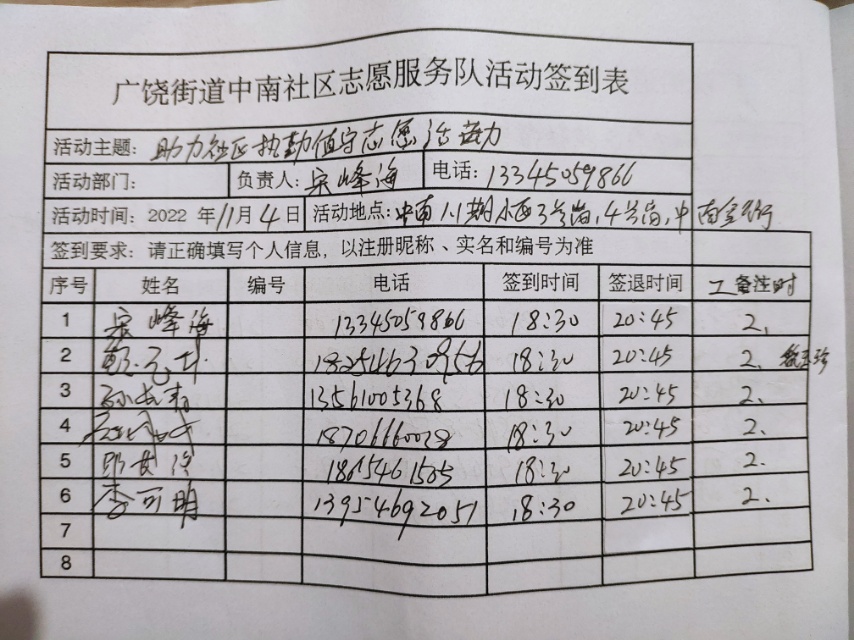 广饶街道中南社区志愿服务队活动签到表
活动主题: 助力社区执勤值守志愿活动
活动部门: 负责人: 宋峰海 电话: 13345059866
活动时间: 2022 年11月4日 活动地点: 中南1.1期小区3号岗,4号岗,中南
签到要求: 请正确填写个人信息，以注册昵称、实名和编号为准
序号 姓名 编号 电话 签到时间 签退时间 工 备注 时
1 宋峰海 13345059866 18:30 20:45 2、
2 18:30 20:45 2、
3 孙长青 13561005368 18:30 20:45 2、
4 18706660028 18:30 20:45 2、
5 18:30 20:45 2、
6 李可明 13954692051 18:30 20:45 2、
7
8